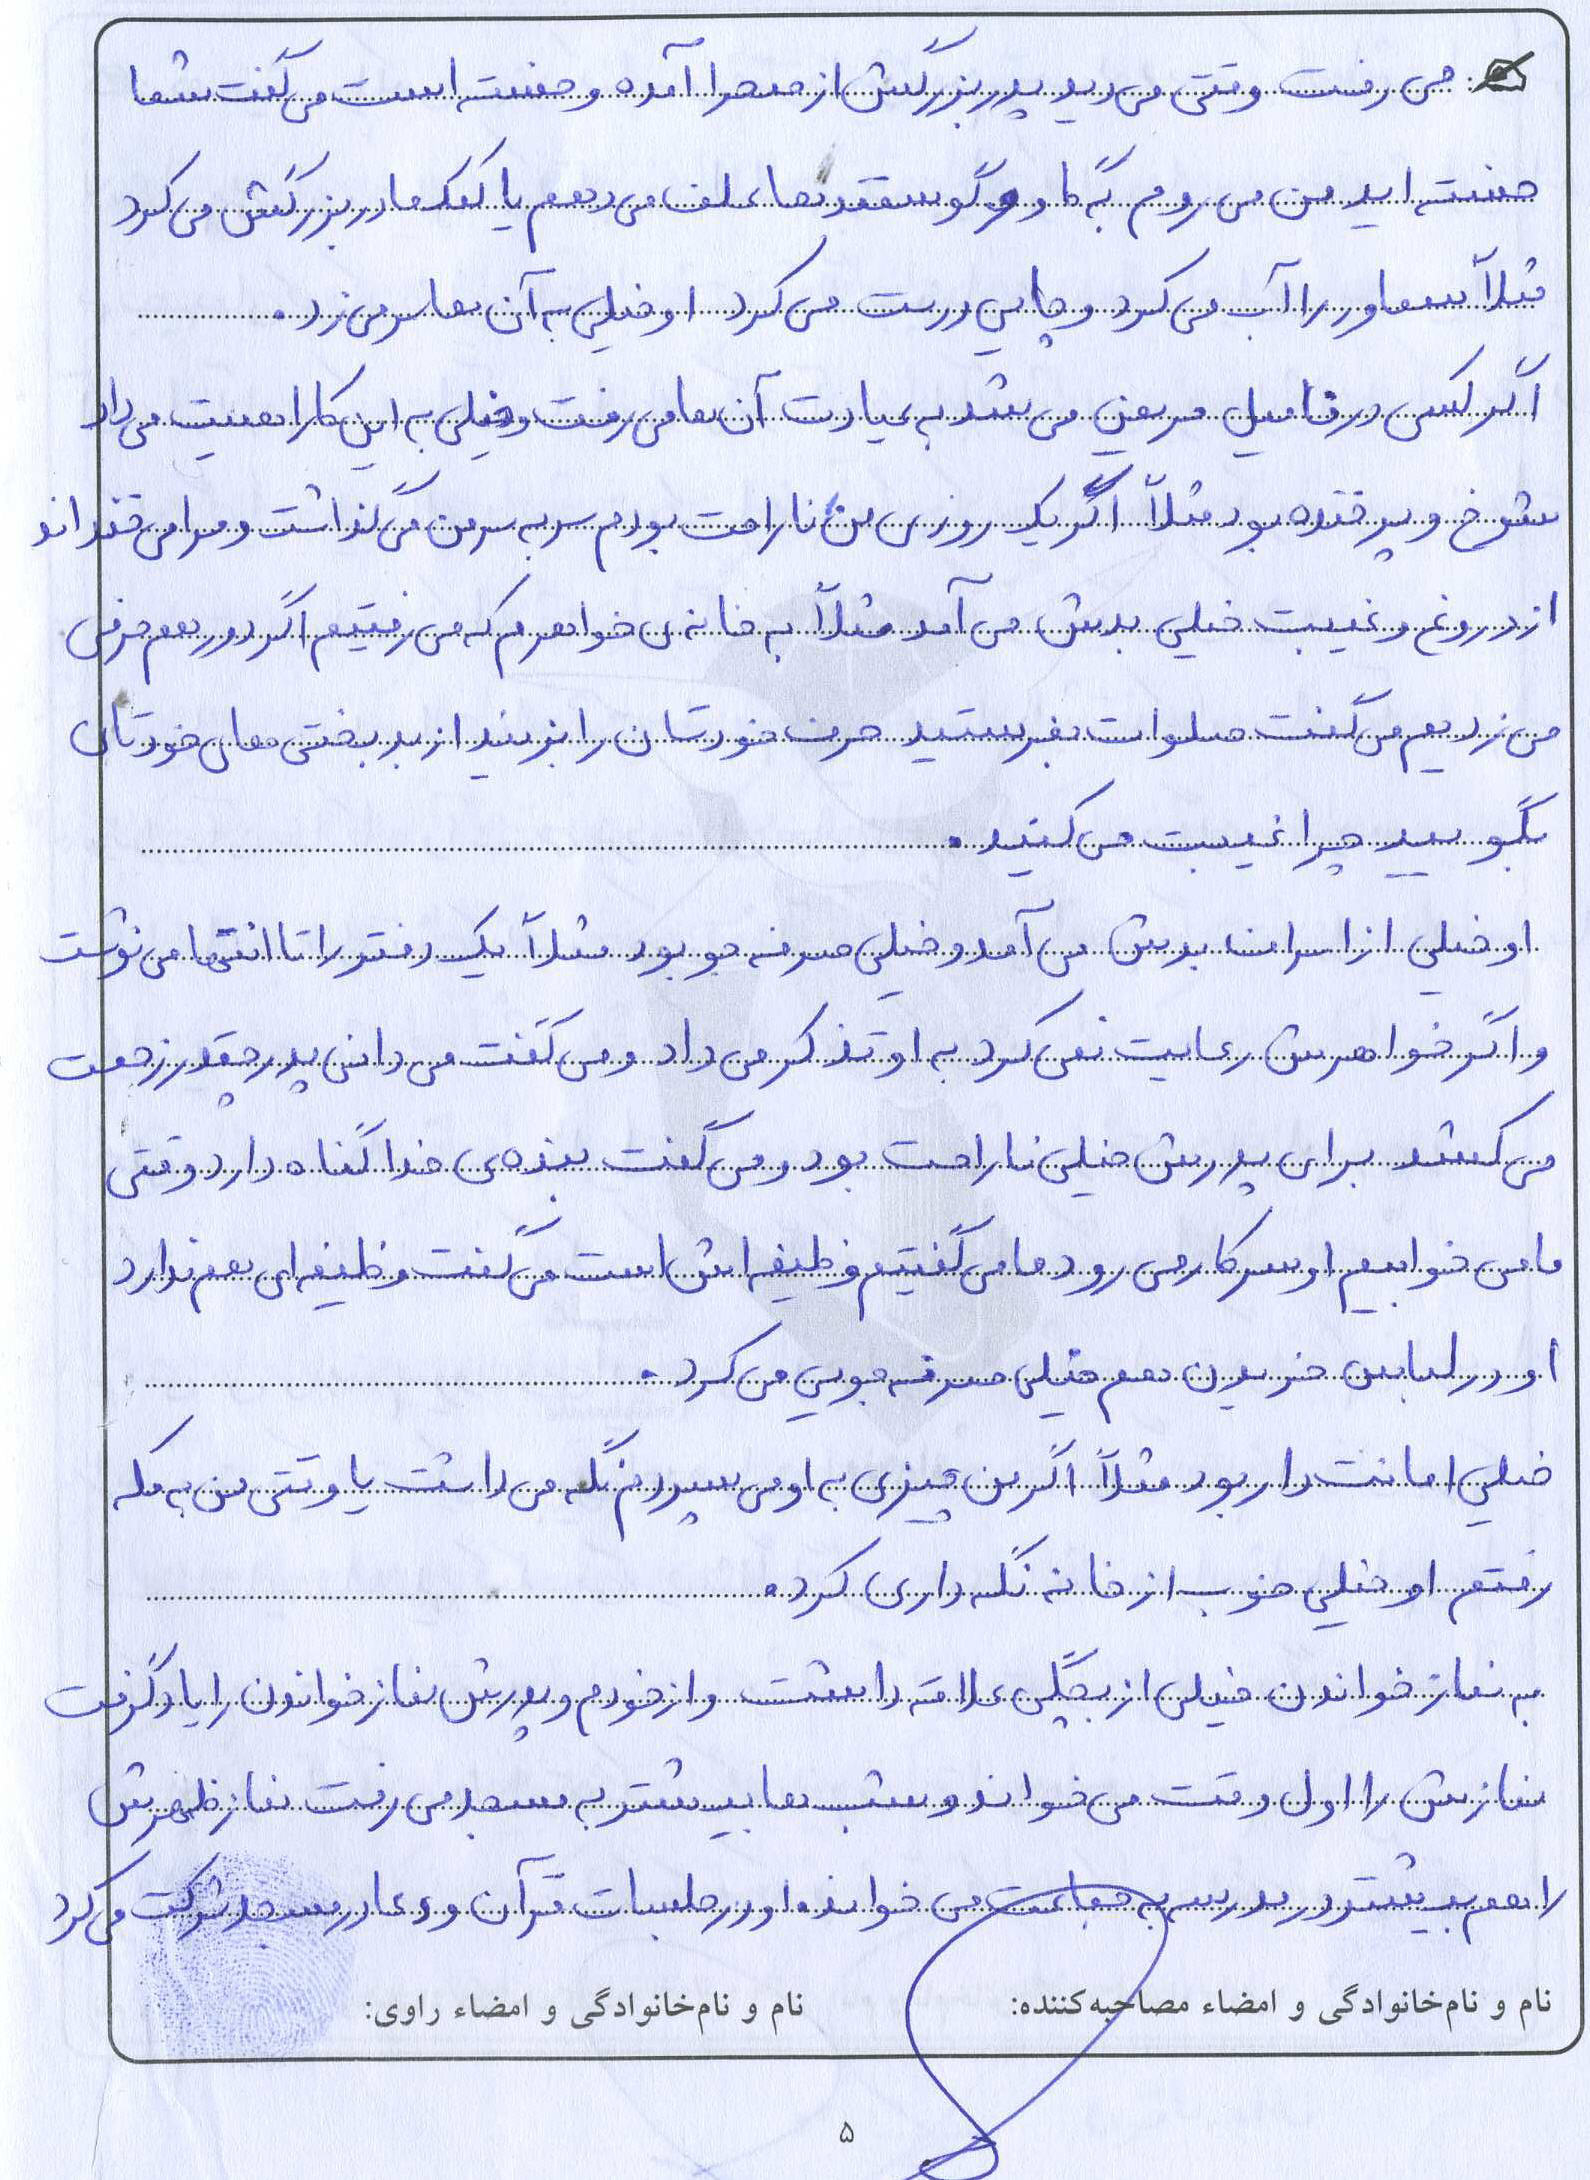 می رفت وقتی می دید پدر بزرگش از صحرا آمده و خسته است می گفت شما
خسته اید من می روم به گاو و گوسفندها علف می دهم یا کمک مادر بزرگش می کرد
مثلاً سماور را آب می کرد و چایی درست می کرد او خیلی به آن ها سر می زد.
اگر کسی در فامیل مریض می شد به عیادت آن ها می رفت و خیلی به این کار اهمیت می داد
شوخ و پر خنده بود مثلاً اگر یک روزی من ناراحت بودم سر به سر من می گذاشت و مرا می خنداند
از دروغ و غیبت خیلی بدش می آمد مثلاً به خانه ی خواهرم که می رفتیم اگر دور هم حرفی
می زدیم می گفت صلوات بفرستید حرف خودتان را بزنید از بدبختی های خودتان
بگویید چرا غیبت می کنید.
او خیلی از اسراف بدش می آمد و خیلی صرفه جو بود مثلاً یک دفتر را تا انتها می نوشت
و اگر خواهرش رعایت نمی کرد به او تذکر می داد و می گفت می دانی پدر چقدر زحمت
می کشد برای پدرش خیلی ناراحت بود و می گفت بنده ی خدا گناه دارد وقتی
ما می خوابیم او سر کار می رود ما می گفتیم وظیفه اش است می گفت وظیفه ای هم ندارد
او در لباس خریدن هم خیلی صرفه جویی می کرد.
خیلی امانت دار بود مثلاً اگر من چیزی به او می سپردم نگه می داشت یا وقتی من به مکه
رفتم او خیلی خوب از خانه نگه داری کرد.
به نماز خواندن خیلی از بچگی علاقه داشت و از خودم و پدرش نماز خواندن را یاد گرفت
نمازش را اول وقت می خواند و شب ها بیشتر به مسجد می رفت نماز ظهرش
را هم بیشتر در مدرسه به جماعت می خواند او در جلسات قرآن و دعا در مسجد شرکت می کرد
نام و نام‌خانوادگی و امضاء مصاحبه‌کننده: نام و نام‌خانوادگی و امضاء راوی:
۵